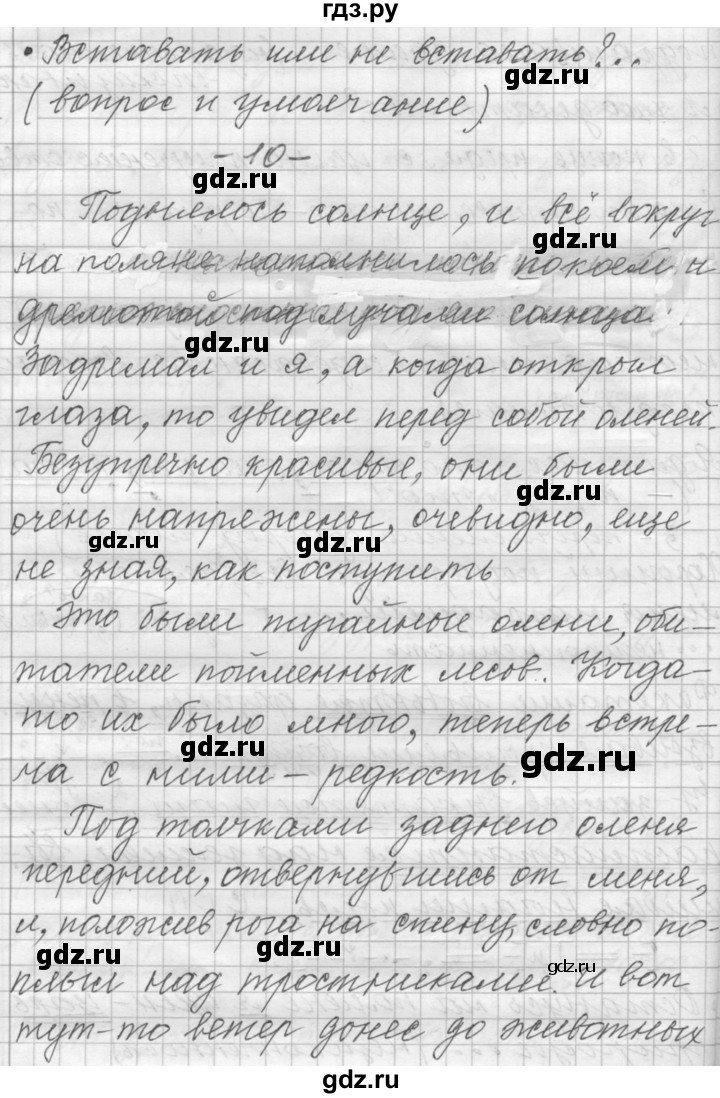 гдз.ру
• Вставать или не вставать?..
gdz.ru
(вопрос и умолчание)
-10-
gdz.ru
Поднялось солнце, и всё вокруг
gdz.ru
на поляне наполнилось покоем и
дремотной под лучами солнца.
gdz.ru
Задремал и я, а когда открыл
глаза, то увидел перед собой оленей.
Безупречно красивые, они были
gdz.ru
очень напряжены, очевидно, еще
gdz.ru gdz.ru
не зная, как поступить
Это были тугайные олени, оби-
татели пойменных лесов. Когда-
то их было много, теперь встре-
gdz.ru gdz.ru
ча с ними – редкость.
Под толчками заднего оленя
передний, отвернувшись от меня,
и, положив рога на спину, словно по-
gdz.ru gdz.ru
плыл над тростниками. И вот
gdz.ru
тут-то ветер донес до животных
gdz.ru